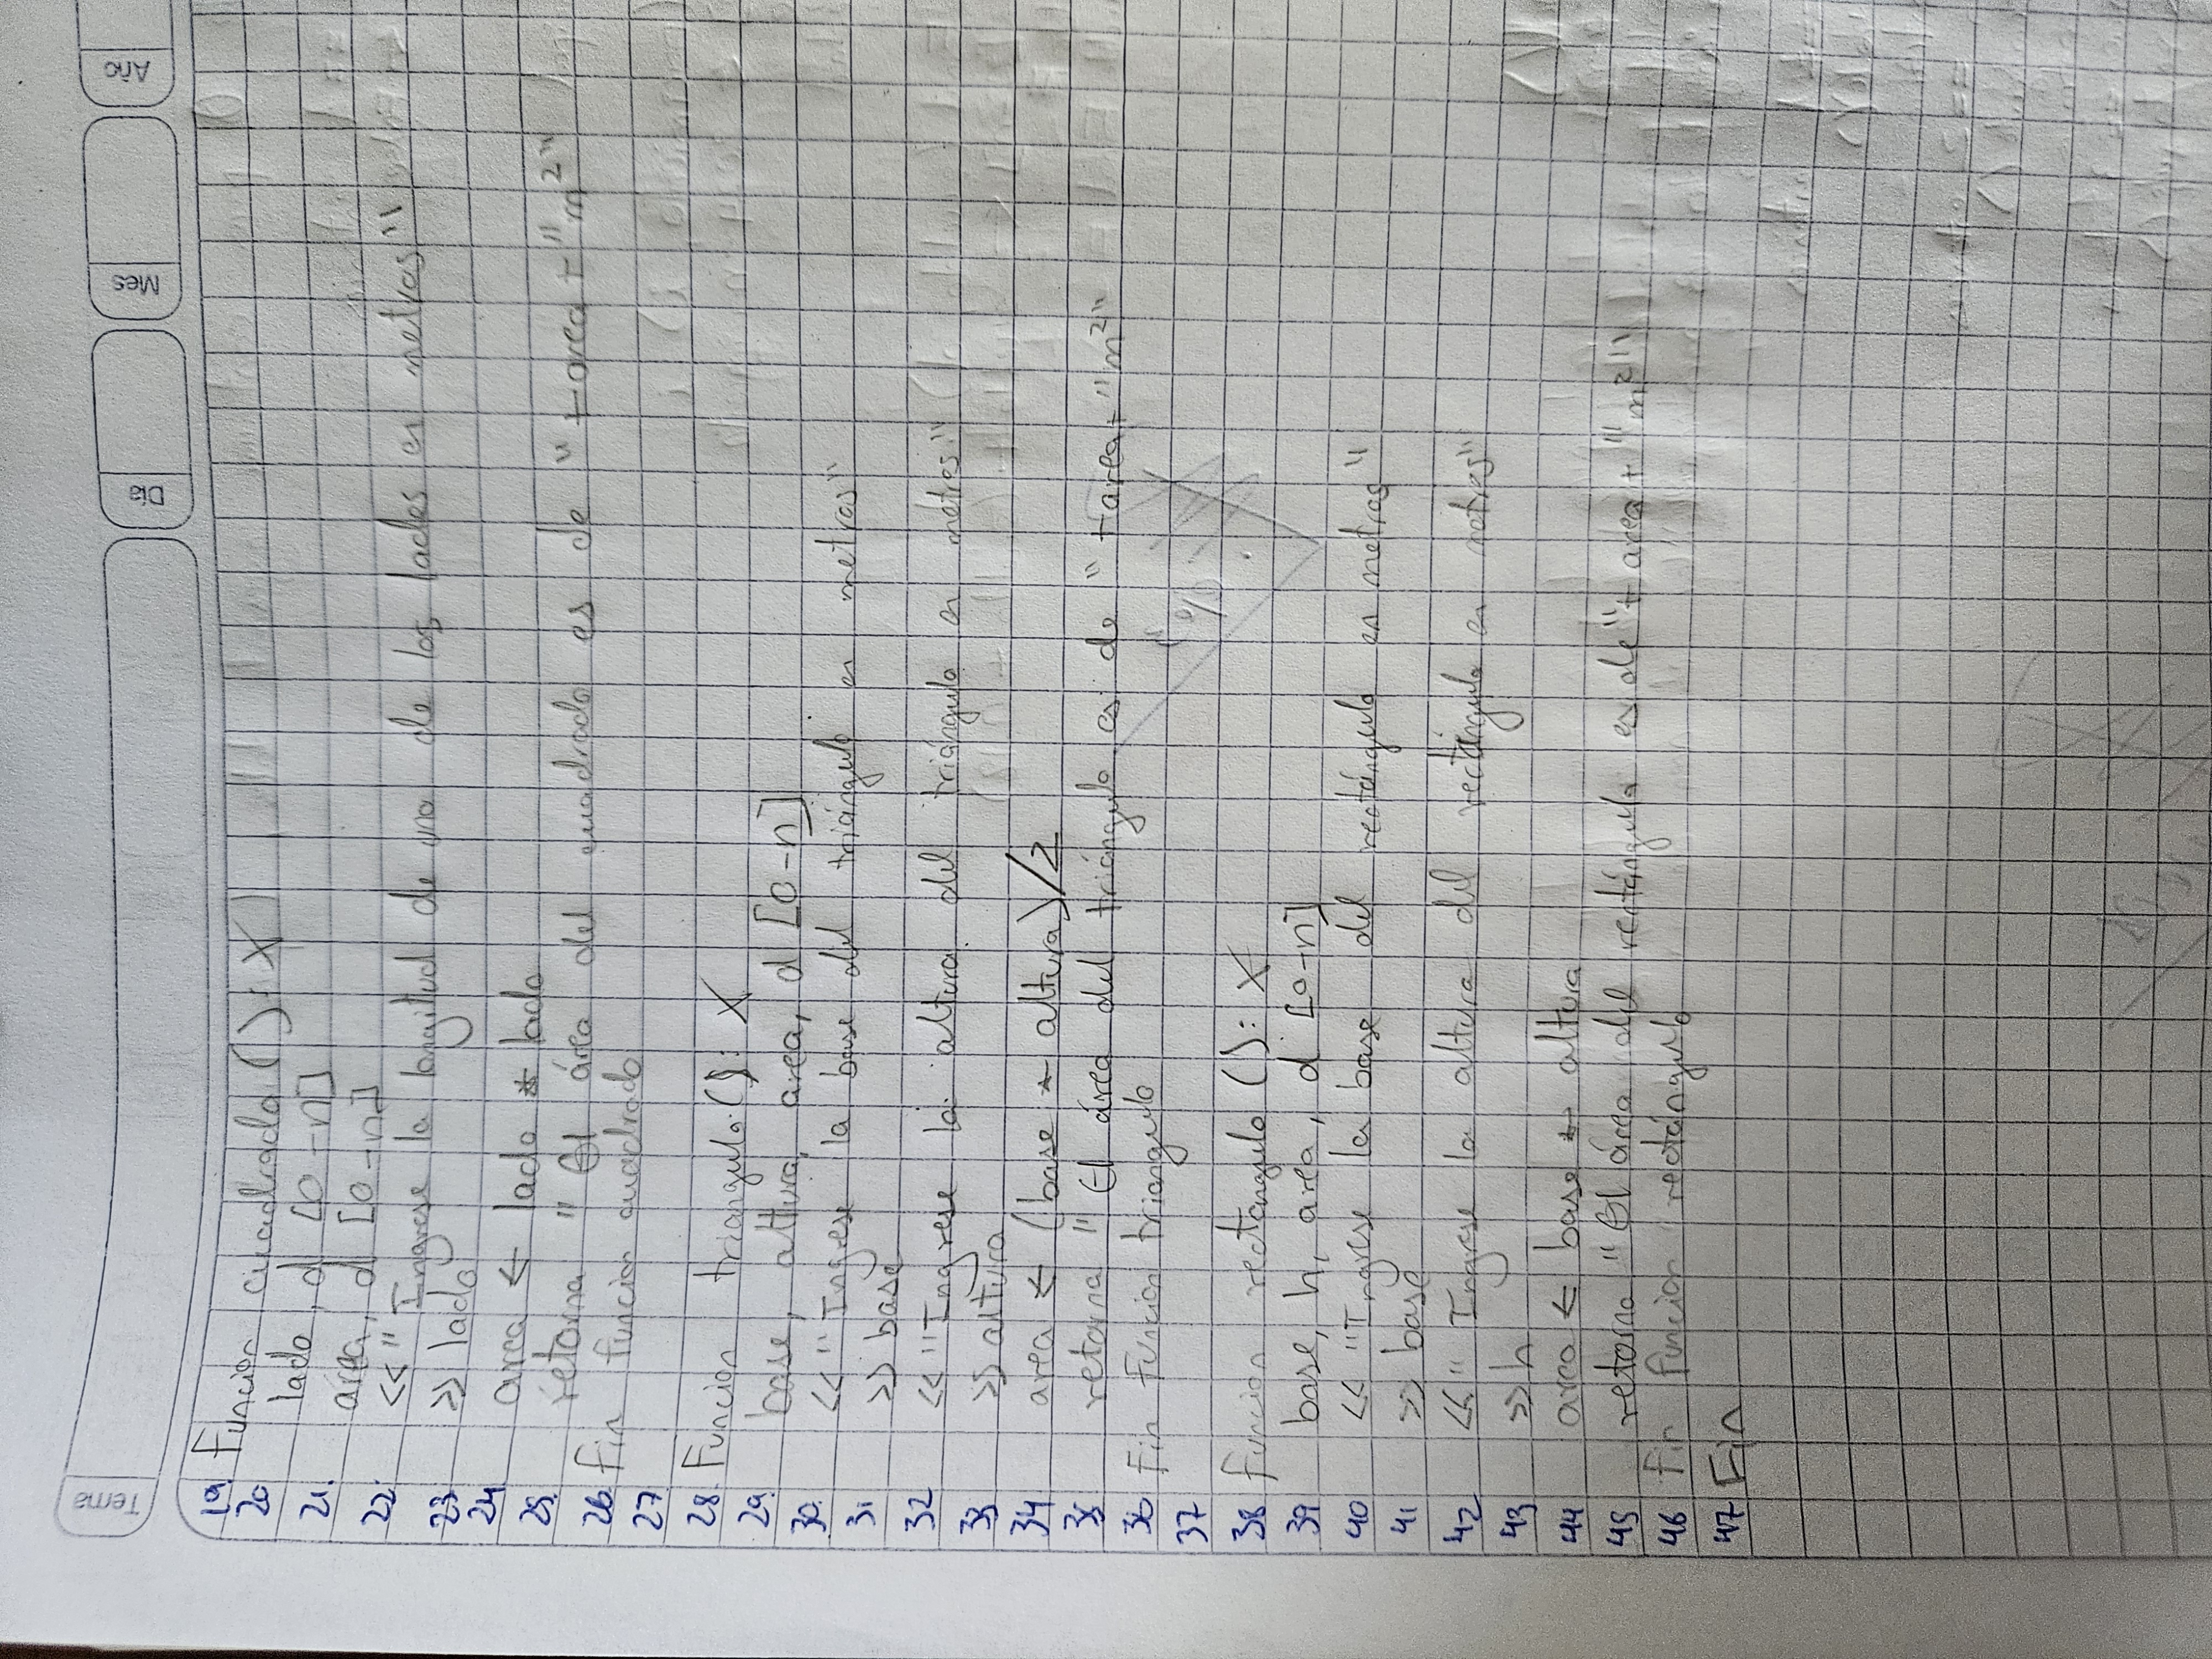 Tema
Día
Mes
Año
19. Función cuadrado ( ): X
20 lado, d [0-n]
21. area, d [0-n]
22. << "Ingrese la longitud de uno de los lados en metros"
23. >> lado
24. area ← lado * lado
25. retorna "El área del cuadrado es de "+area+"m²"
26. Fin función cuadrado
27.
28. Función triangulo ( ): X
29. base, altura, area, d [0-n]
30. << "Ingrese la base del triángulo en metros"
31. >> base
32 << "Ingrese la altura del triángulo en metros"
33 >> altura
34 area ← (base * altura)/2
35 retorna "El área del triángulo es de "+area+"m²"
36 Fin función triangulo
37
38 Función rectangulo ( ): X
39 base, h, area, d [0-n]
40 << "Ingrese la base del rectángulo en metros"
41 >> base
42 << "Ingrese la altura del rectángulo en metros"
43 >> h
44 area ← base * altura
45 retorna "El área del rectángulo es de"+ area+ "m²"
46 Fin función rectángulo
47 Fin